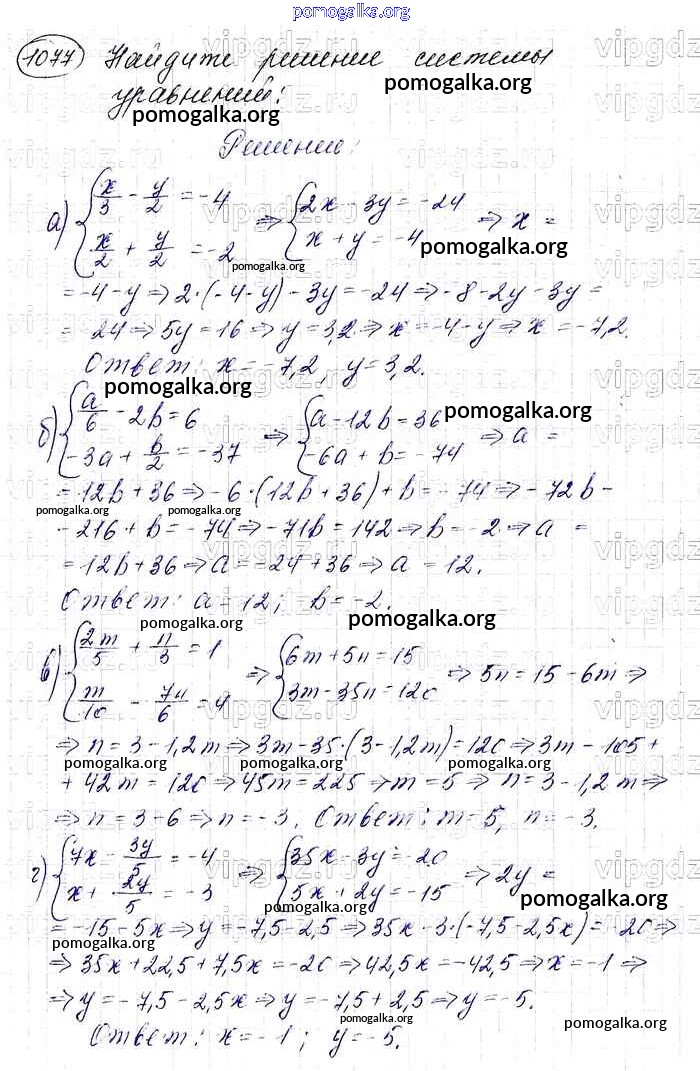 pomogalka.org
1077 Найдите решение системы
уравнений:
pomogalka.org
pomogalka.org
Решение:
а) { x/3 - y/2 = -4 ⇒ { 2x - 3y = -24 ⇒ x =
x/2 + y/2 = -2 x + y = -4
pomogalka.org
pomogalka.org
= -4 - y ⇒ 2·(-4-y) - 3y = -24 ⇒ -8 - 2y - 3y =
= 24 ⇒ 5y = 16 ⇒ y = 3,2 ⇒ x = -4 - y ⇒ x = -7,2.
Ответ: x = -7,2 y = 3,2.
pomogalka.org
б) { a/6 - 2b = 6 ⇒ { a - 12b = 36 ⇒ a =
-3a + b/2 = -37 -6a + b = -74
pomogalka.org
= 12b + 36 ⇒ -6·(12b + 36) + b = -74 ⇒ -72b -
pomogalka.org pomogalka.org pomogalka.org
- 216 + b = -74 ⇒ -71b = 142 ⇒ b = -2 ⇒ a =
= 12b + 36 ⇒ a = -24 + 36 ⇒ a = 12.
Ответ: a = 12; b = -2.
pomogalka.org pomogalka.org
в) { 2m/5 + n/3 = 1 ⇒ { 6m + 5n = 15 ⇒ 5n = 15 - 6m ⇒
m/10 - 7n/6 = 4 3m - 35n = 120
⇒ n = 3 - 1,2m ⇒ 3m - 35·(3 - 1,2m) = 120 ⇒ 3m - 105 +
pomogalka.org pomogalka.org pomogalka.org
+ 42m = 120 ⇒ 45m = 225 ⇒ m = 5 ⇒ n = 3 - 1,2m ⇒
⇒ n = 3 - 6 ⇒ n = -3. Ответ: m = 5, n = -3.
г) { 7x - 3y/5 = -4 ⇒ { 35x - 3y = -20 ⇒ 2y =
x + 2y/5 = -3 5x + 2y = -15
pomogalka.org pomogalka.org
= -15 - 5x ⇒ y = -7,5 - 2,5 ⇒ 35x - 3·(-7,5 - 2,5x) = -20 ⇒
pomogalka.org pomogalka.org
⇒ 35x + 22,5 + 7,5x = -20 ⇒ 42,5x = -42,5 ⇒ x = -1 ⇒
⇒ y = -7,5 - 2,5x ⇒ y = -7,5 + 2,5 ⇒ y = -5.
pomogalka.org pomogalka.org
Ответ: x = -1; y = -5.